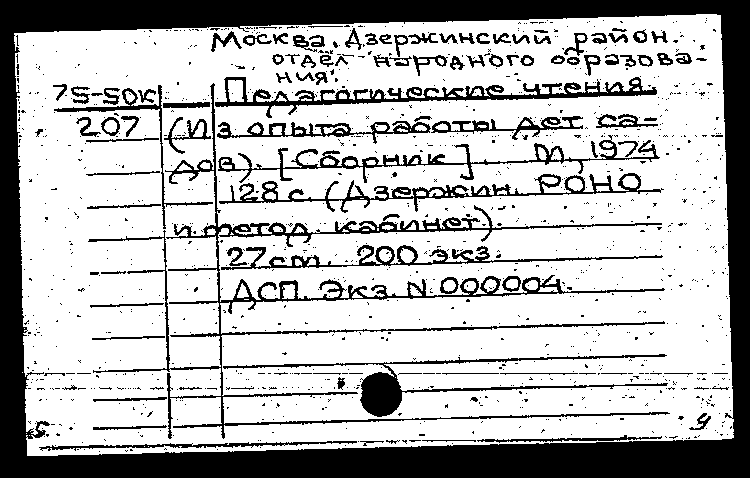 Москва. Дзержинский район.
отдел народного образова-
ния.
75-50к Педагогические чтения.
207 (Из опыта работы дет са-
дов). [Сборник]. М., 1974
128 с. (Дзержин. РОНО
и метод. кабинет).
27 см. 200 экз.
ДСП. Экз. N 000004.